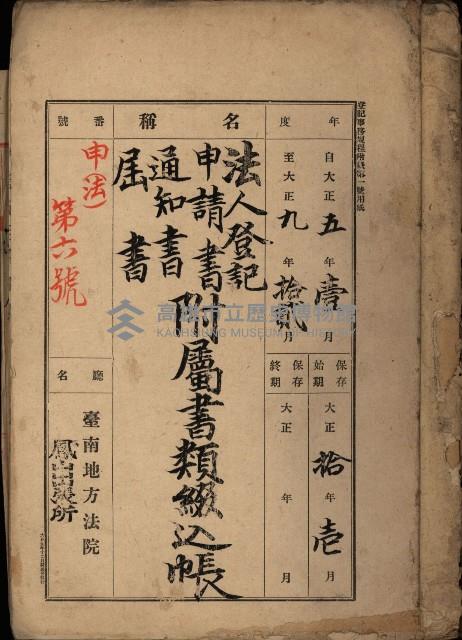 年 自大正五年壹月
度 至大正九年拾貳月
保存始期 大正拾年壹月
保存終期 大正 年 月
名稱
法人登記
申請書
通知書
屆書
附屬書類綴込帳
番號
申(法)
第六號
廳名
臺南地方法院
鳳山出張所
高雄市立歷史博物館
KAOHSIUNG MUSEUM OF HISTORY